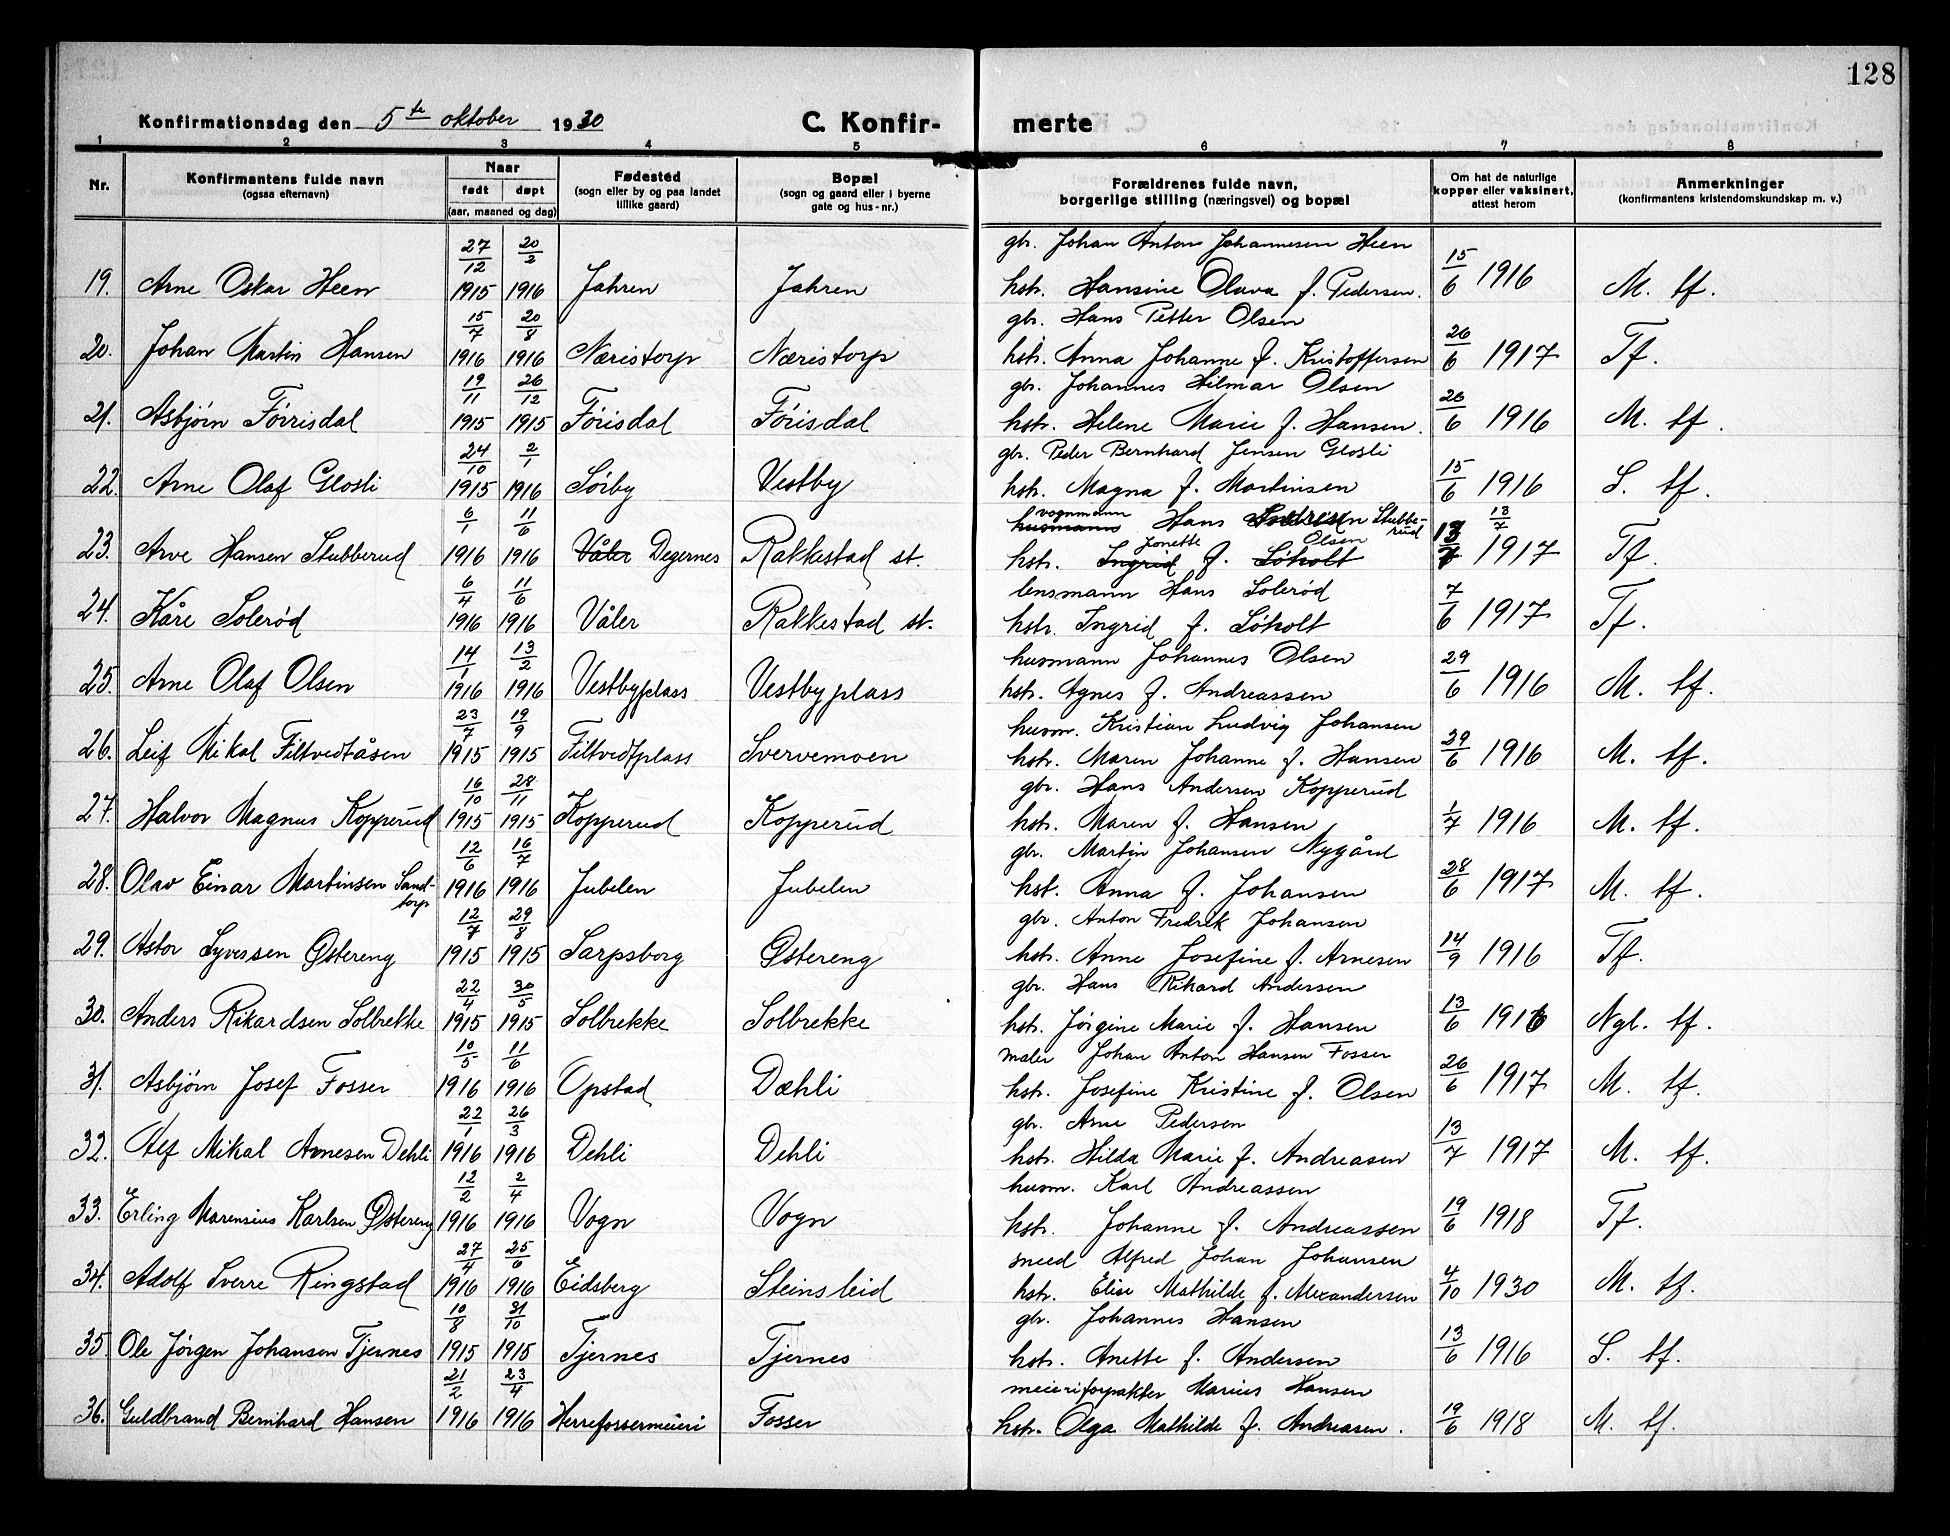 128
Konfirmationsdag den 5te oktober 1930 C. Konfir- merte
1 2 3 4 5 6 7 8
Nr. Konfirmantens fulde navn (ogsaa efternavn) Naar født døpt (aar, maaned og dag) Fødested (sogn eller by og paa landet tillike gaard) Bopæl (sogn og gaard eller i byerne gate og hus-nr.) Forældrenes fulde navn, borgerlige stilling (næringsvei) og bopæl Om hat de naturlige kopper eller vaksinert, attest herom Anmerkninger (konfirmantens kristendomskundskap m. v.)
27/12 20/2 gbr. Johan Anton Johannesen Heen
19. Arne Oskar Heen 1915 1916 Jahren Jahren hstr. Hansine Olava f. Pedersen. 15/6 1916 M. tf.
15/7 20/8 gbr. Hans Petter Olsen
20. Johan Martin Hansen 1916 1916 Næristorp Næristorp hstr. Anna Johanne f. Kristoffersen 26/6 1917 Tf.
19/11 26/12 gbr. Johannes Hilmar Olsen
21. Asbjørn Førrisdal 1915 1915 Førisdal Førisdal hstr. Helene Marie f. Hansen. 26/6 1916 M. tf.
24/10 2/1 gbr. Peder Bernhard Jensen Glosli
22. Arne Olaf Glosli 1915 1916 Sørby Vestby hstr. Magna f. Martinsen 15/6 1916 S. tf.
6/1 11/6 husmann vognmann Hans Andresen Stubberud 13/7
23. Arve Hansen Stubberud 1916 1916 Våler Degernes Rakkestad st. hstr. Ingrid Jonette f. Løholt Olsen 13/7 1917 Tf.
6/4 11/6 lensmann Hans Solerød
24. Kåre Solerød 1916 1916 Våler Rakkestad st. hstr. Ingrid f. Løholt 7/6 1917 Tf.
14/1 13/2 husmann Johannes Olsen
25. Arne Olaf Olsen 1916 1916 Vestbyplass Vestbyplass hstr. Agnes f. Andreassen 29/6 1916 M. tf.
23/7 19/9 husm. Kristian Ludvig Johansen
26. Leif Mikal Filtvedtåsen 1915 1915 Filtvedtplass Svervemoen hstr. Maren Johanne f. Hansen 29/6 1916 M. tf.
16/10 28/11 gbr. Hans Andersen Kopperud
27. Halvor Magnus Kopperud 1915 1915 Kopperud Kopperud hstr. Maren f. Hansen 1/7 1916 M. tf.
12/6 16/7 gbr. Martin Johansen Nygård
28. Olav Einar Martinsen Sandtorp 1916 1916 Jubelen Jubelen hst. Anna f. Johansen 28/6 1917 M. tf.
12/7 29/8 gbr. Anton Fredrik Johansen
29. Astor Syversen Østereng 1915 1915 Sarpsborg Østereng hstr. Anne Josefine f. Arnesen 14/9 1916 Tf.
22/4 30/5 gbr. Hans Rikard Andersen
30. Anders Rikardsen Solbrekke 1915 1915 Solbrekke Solbrekke hstr. Jørgine Marie f. Hansen 13/6 1916 Ngl. tf.
10/5 11/6 maler Johan Anton Hansen Fosser
31. Asbjørn Josef Fosser 1916 1916 Opstad Dæhli hstr. Josefine Kristine f. Olsen 26/6 1917 M. tf.
22/1 26/3 gbr. Arne Pedersen
32. Alf Mikal Arnesen Dehli 1916 1916 Dehli Dehli hstr. Hilda Marie f. Andreasen 13/7 1917 M. tf.
12/2 2/4 husm. Karl Andreassen
33. Erling Marensius Karlsen Østereng 1916 1916 Vogn Vogn hstr. Johanne f. Andreassen 19/6 1918 Tf.
27/4 25/6 smed Alfred Johan Johansen
34. Adolf Sverre Ringstad 1916 1916 Eidsberg Steinsleid hstr. Elise Mathilde f. Alexandersen 4/10 1930 M. tf.
10/8 31/10 gbr. Johannes Hansen
35. Ole Jørgen Johansen Tjernes 1915 1915 Tjernes Tjernes hstr. Anette f. Andersen 13/6 1916 S. tf.
21/2 23/4 meieriforpakter Marius Hansen
36. Guldbrand Bernhard Hansen 1916 1916 Herrefossermeieri Fosser hstr. Olga Mathilde f. Andreasen. 19/6 1918 M. tf.